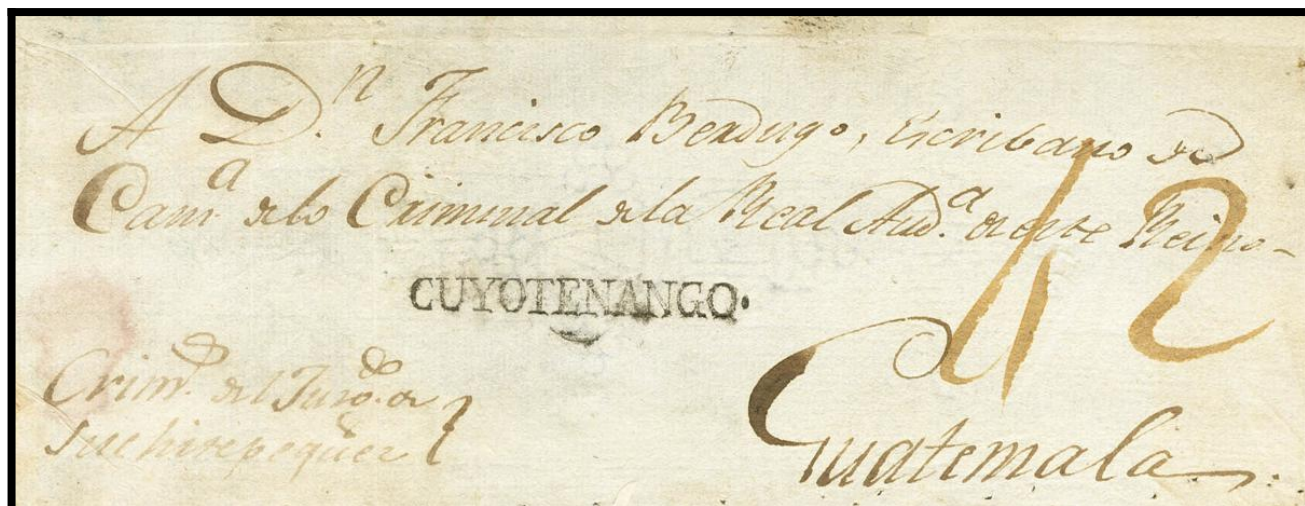 A D.n Francisco Berdugo, Escribano de
Cam.a delo Criminal dela Real Aud.a de este Reino
CUYOTENANGO.
12
Crim.s del Juzg.do de
Suchitepequez
Guatemala